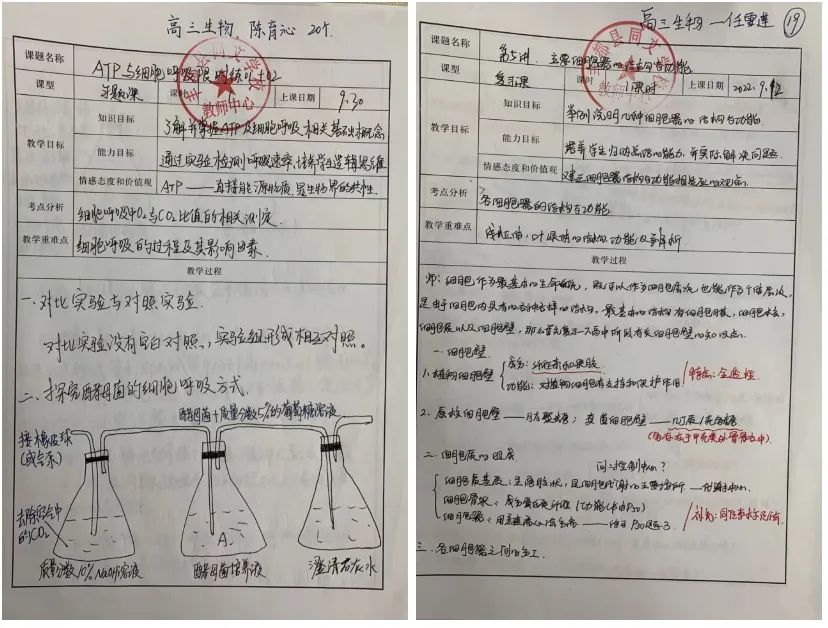 高三生物 陈育沁 20个
课题名称 ATP与细胞呼吸限时练01+02
课型 习题课 课时 1 上课日期 9.30
教学目标
知识目标 了解并掌握ATP及细胞呼吸相关基础概念
能力目标 通过实验检测呼吸速率,培养学生逻辑思维
情感态度和价值观 ATP——直接能源物质,是生物界的共性.
考点分析 细胞呼吸中O₂与CO₂比值的相关测定.
教学重难点 细胞呼吸的过程及其影响因素.
教学过程
一.对比实验与对照实验.
对比实验没有空白对照、,实验组形成相互对照。
二、探究酵母菌的细胞呼吸方式.
酵母菌+质量分数5%的葡萄糖溶液
接橡皮球
(或气泵)
去除空气中
的CO₂
A.
质量分数10%NaOH溶液 酵母菌培养液 澄清石灰水
同文学校
教师中心
高三生物—任雪莲 19
课题名称 第5讲 主要细胞器的结构与功能
课型 复习课 课时 1课时 上课日期 2022.9.12
教学目标
知识目标 举例说明几种细胞器的结构与功能
能力目标 培养学生归纳总结的能力,并实际解决问题.
情感态度和价值观 建立细胞器结构与功能相适应的观点.
考点分析 各细胞器的结构与功能
教学重难点 线粒体,叶绿体的结构功能及辨析
教学过程
师:细胞作为最基本的生命系统,既可以作为细胞层次也能作为个体层次,
是由于细胞内具有各种各样的结构。最基本的结构有细胞膜,细胞核,
细胞质以及细胞壁,
一.细胞壁
1.植物细胞壁 成分:纤维素和果胶
功能:对植物细胞有支持和保护作用 特点:全透性
2.原核细胞壁——肽聚糖;真菌细胞壁——几丁质
二.细胞质的组成 问:控制中心?
细胞质基质,呈溶胶状,且细胞代谢的主要场所——代谢中心.
细胞骨架,
细胞器,
三.各细胞器之间的分工
丰都县同文学校
教师中心